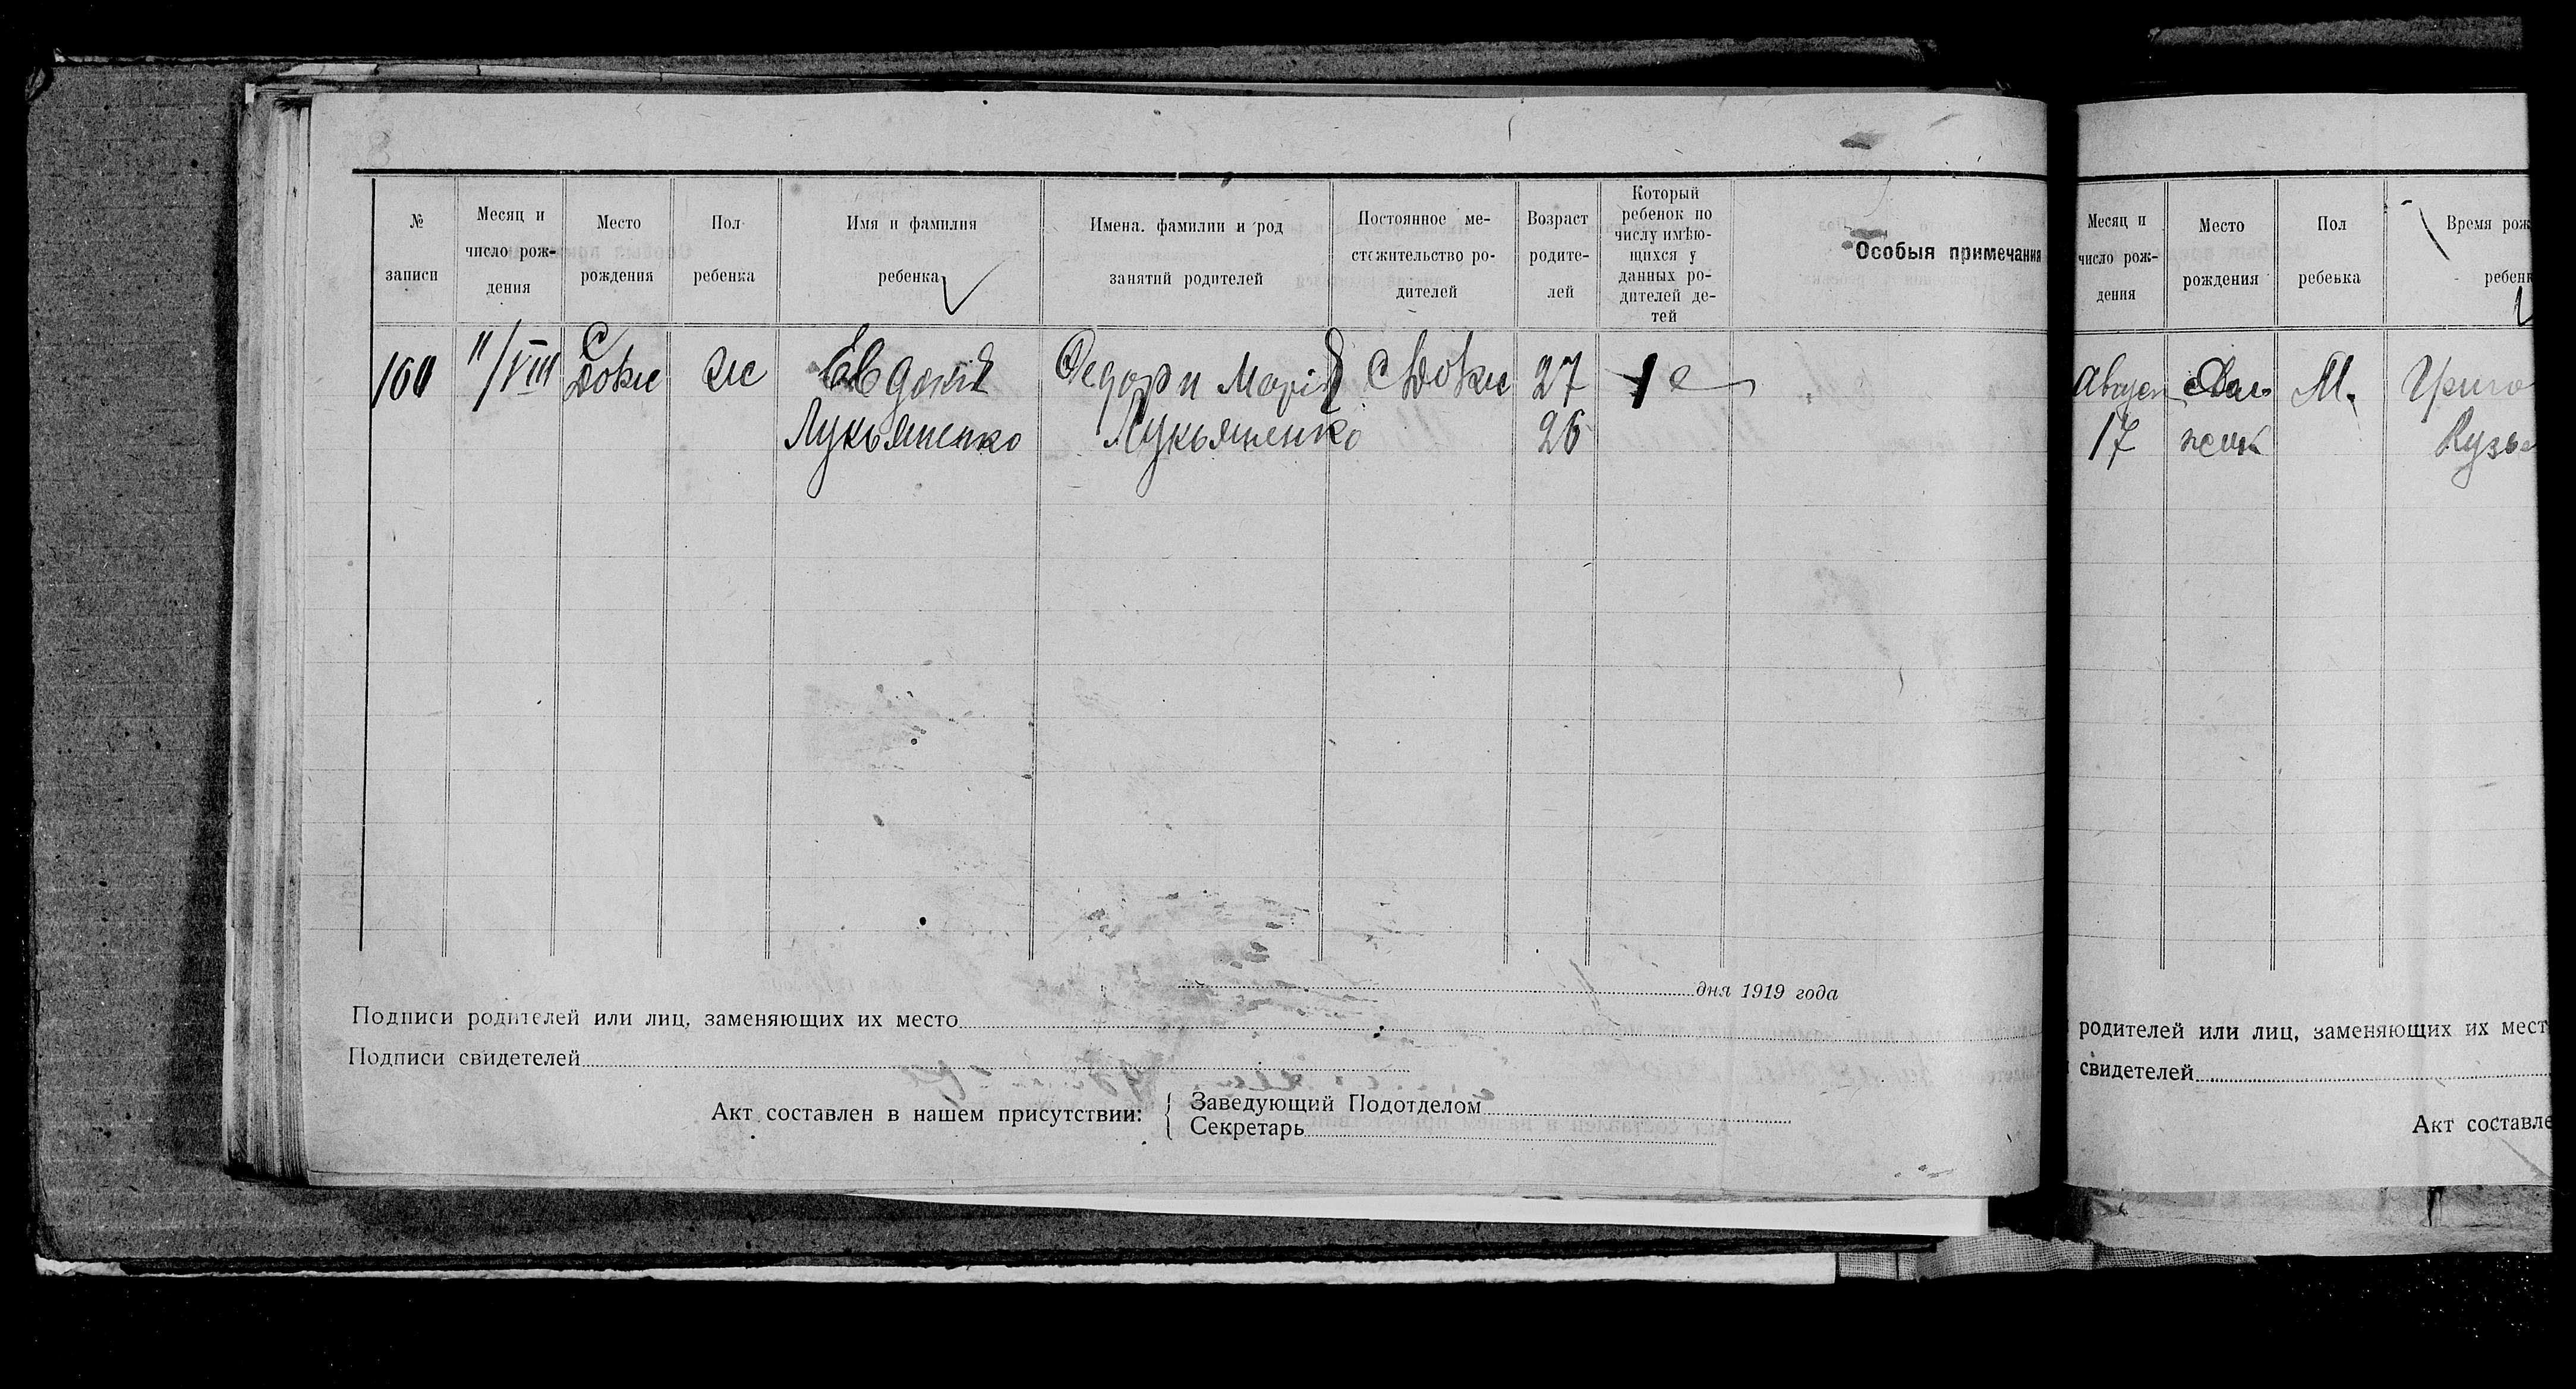 № записи
Месяц и число рождения
Место рождения
Пол ребенка
Имя и фамилия ребенка
Имена. фамилии и род занятий родителей
Постоянное местожительство родителей
Возраст родителей
Который ребенок по числу имѣющихся у данных родителей детей
Особыя примечания
11/VIII
С
ЕВдокія
Федор и Марія
27
1 е
Лукьяненко
Лукьяненко
26
дня 1919 года
Подписи родителей или лиц, заменяющих их место
Подписи свидетелей
Акт составлен в нашем присутствии:
Заведующий Подотделом
Секретарь
Месяц и число рождения
Место рождения
Пол ребенка
Время рож
ребен
М.
17
родителей или лиц, заменяющих их мест
свидетелей
Акт составле